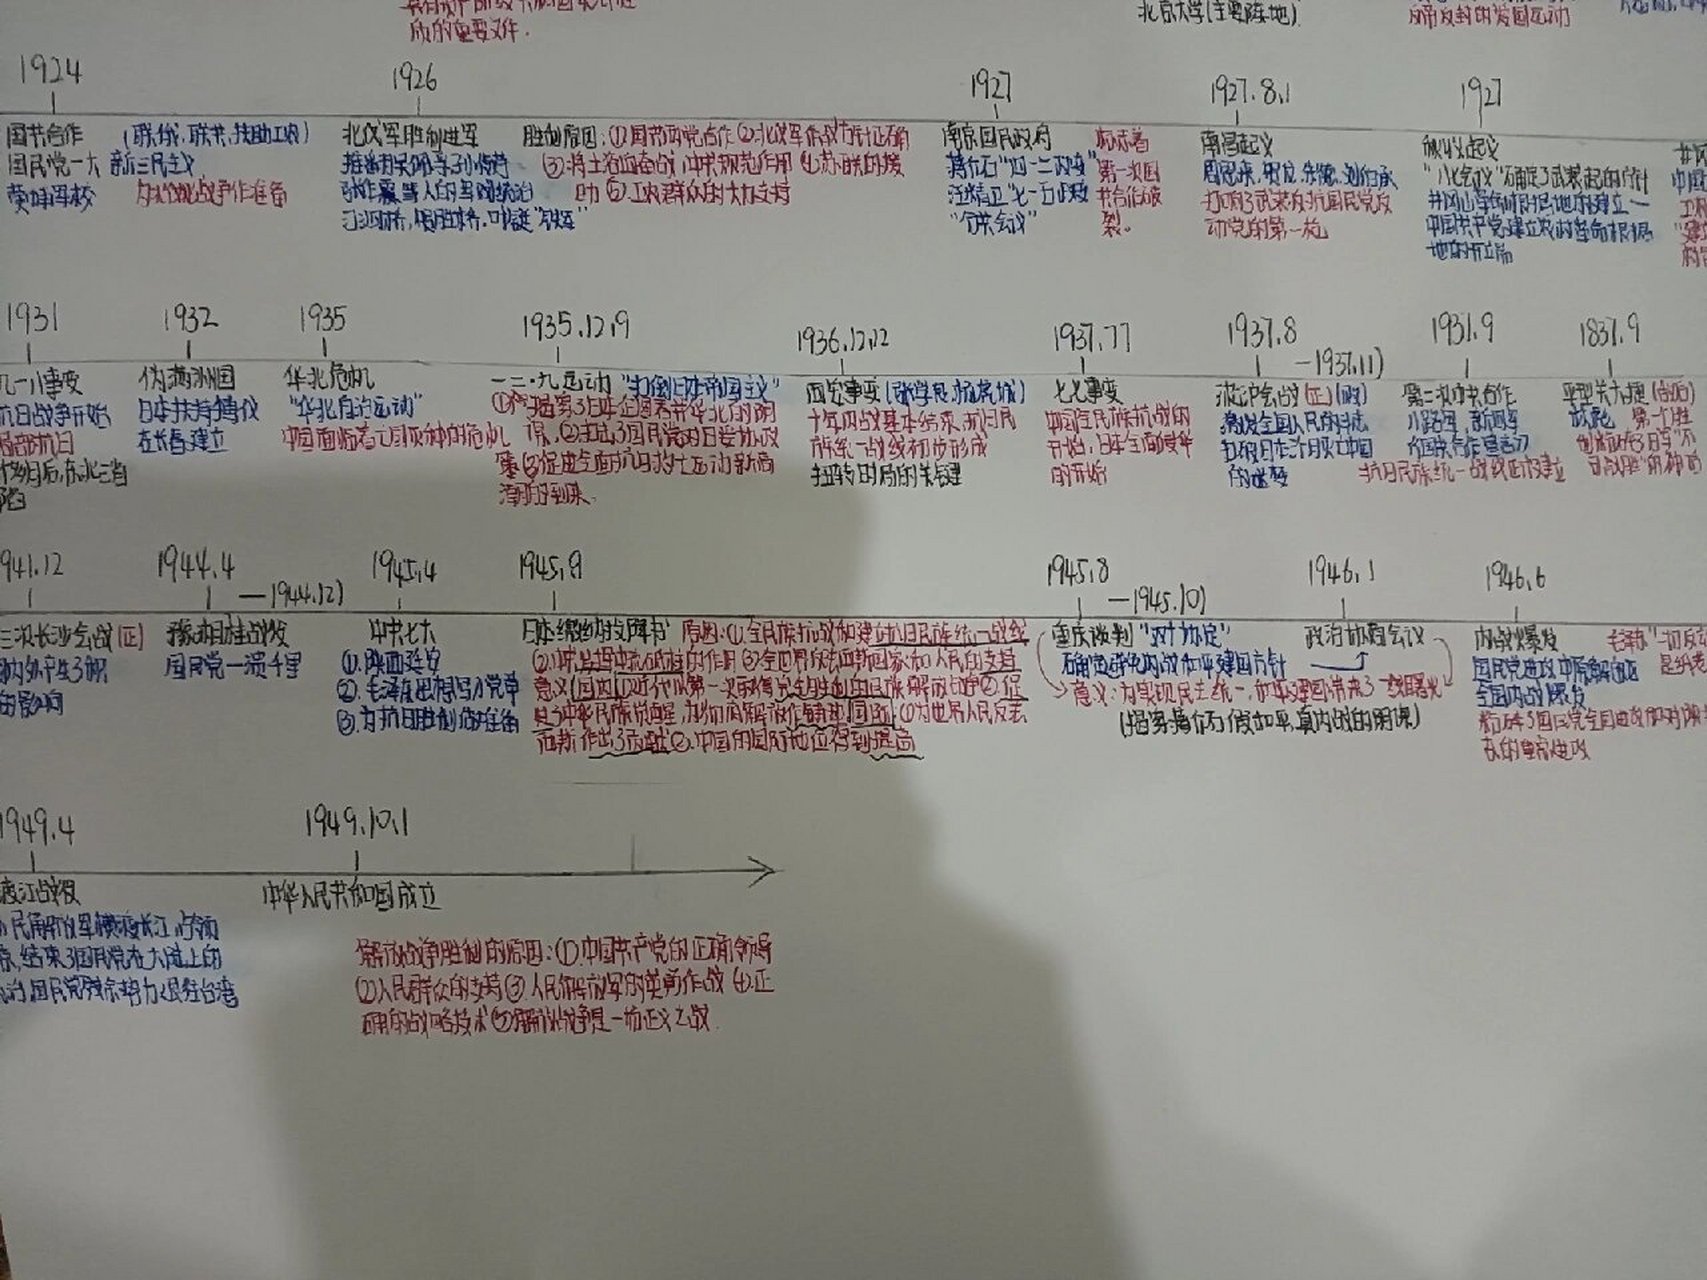 质的重要文件.
北京大学(主要阵地)
反帝反封的爱国运动
1924
1926
1927
1927.8.1
1927
国共合作
国民党一大
黄埔军校
(联俄,联共,扶助工农)
新三民主义
为北伐战争作准备
北伐军胜利进军
推翻为吴佩孚孙传芳
张作霖等人的军阀统治
汀泗桥,贺胜桥.叶挺"铁军"
胜利原因:①国共两党合作②北伐军作战方针正确
③将士浴血奋战,中共模范作用④苏联的援
助⑤工农群众的大力支持
南京国民政府
蒋介石"四一二政变"
汪精卫"七一五政变
"分共会议"
标志着
第一次国
共合作破
裂。
南昌起义
周恩来,贺龙,朱德,刘伯承
打响了武装反抗国民党反
动党的第一枪
秋收起义
"八七会议"确定了武装起的方针
井冈山革命根据地的建立一
中国共产党建立农村革命根据
地的开端
1931
1932
1935
1935.12.9
1936.12.12
1937.77
1937.8
—1937.11)
1931.9
1837.9
九一八事变
抗日战争开始
局部抗日
伪满洲国
日本扶持溥仪
在长春建立
华北危机
"华北自治运动"
中国面临着亡国灭种的危机
一二·九运动"打倒日本帝国主义"
①揭穿了日本企图吞并华北的阴
谋,②打击了国民党对日妥协政
策③促进全国抗日救亡运动新高
潮的到来.
西安事变(张学良,杨虎城)
十年内战基本结束,抗日民
族统一战线初步形成
扭转时局的关键
七七事变
中国全民族抗战的
开始,日本全面侵华
的开始
淞沪会战(正)(败)
激发全国人民的斗志
打破日本三个月灭亡中国
的迷梦
第二次国共合作
八路军,新四军
国共合作宣言
抗日民族统一战线正式建立
平型关大捷(台儿)
941.12
1944.4
—1944.12)
1945.4
1945.9
1945.8
—1945.10)
1946.1
1946.6
三次长沙会战(正)
国内外产生了积
的影响
豫湘桂战役
国民党一溃千里
中共七大
①.陕西延安
②.毛泽东思想写入党章
③.为抗日胜利做准备
日本缔结投降书
原因:①.全民族抗战和建立抗日民族统一战线
②中共发挥中流砥柱的作用③全世界反法西斯国家和人民的支持
意义(国内)①近代以第一次取得完全胜利的民族解放战争②.促
进了中华民族觉醒,为彻底解放作铺垫.国际①为世界人民反法
西斯作出了贡献②.中国的国际地位得到提高
重庆谈判"双十协定"
确定避免内战和平建国方针
意义:为实现民主统一,和平建国带来了一线曙光
(揭穿蒋介石假和平,真内战的阴谋)
政治协商会议
内战爆发
国民党进攻中原解放区
全国内战爆发
粉碎了国民党全面进攻即对陕
1949.4
1949.10.1
渡江战役
人民解放军横渡长江,占领
京,结束了国民党在大陆上的
治,国民党残余势力退往台湾
中华人民共和国成立
解放战争胜利的原因:①.中国共产党的正确领导
②人民群众的支持③.人民解放军的英勇作战④.正
确的战略技术⑤解放战争是一场正义之战.